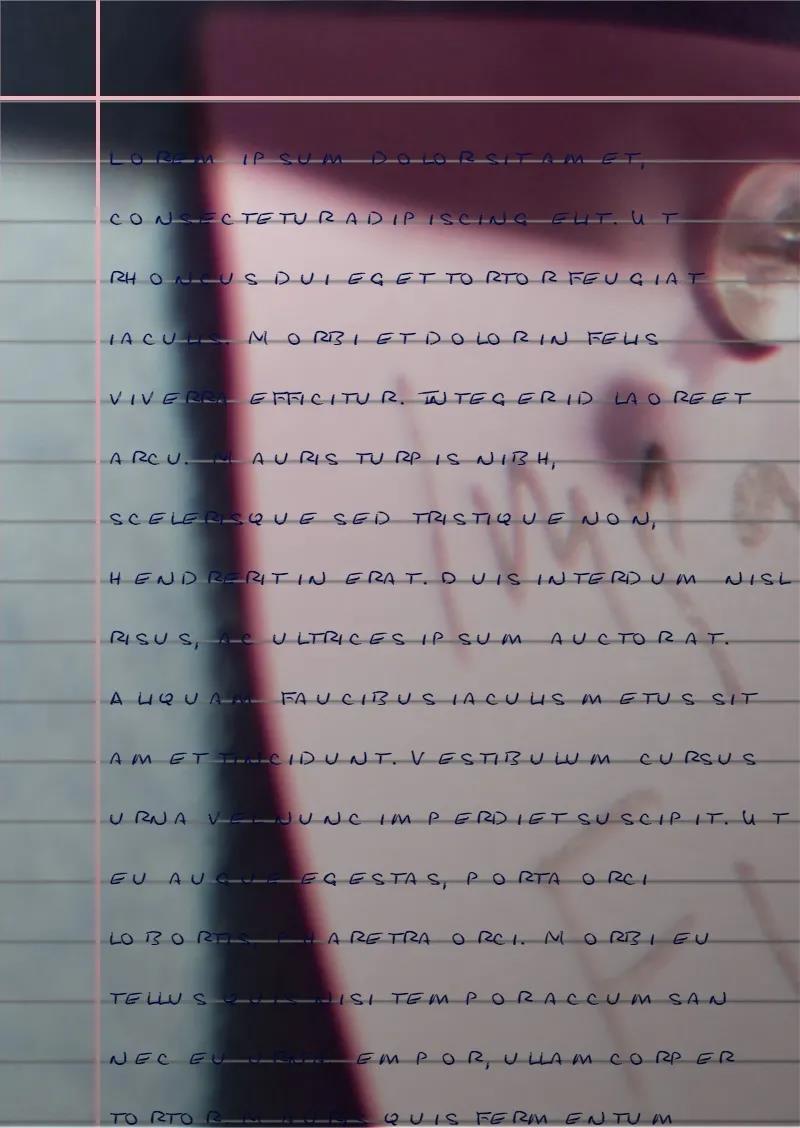 LOREM IPSUM DOLOR SIT AMET,
CONSECTETUR ADIPISCING ELIT. UT
RHONCUS DUI EGET TORTOR FEUGIAT
IACULIS. MORBI ET DOLOR IN FELIS
VIVERRA EFFICITUR. INTEGER ID LAOREET
ARCU. MAURIS TURPIS NIBH,
SCELERISQUE SED TRISTIQUE NON,
HENDRERIT IN ERAT. DUIS INTERDUM NISL
RISUS, AC ULTRICES IPSUM AUCTOR AT.
ALIQUAM FAUCIBUS IACULIS METUS SIT
AMET TINCIDUNT. VESTIBULUM CURSUS
URNA VEL NUNC IMPERDIET SUSCIPIT. UT
EU AUGUE EGESTAS, PORTA ORCI
LOBORTIS PHARETRA ORCI. MORBI EU
TELLUS QUIS NISI TEMPOR ACCUMSAN
NEC EU URNA. EMPOR, ULLAMCORPER
TORTOR MAURIS QUIS FERMENTUM